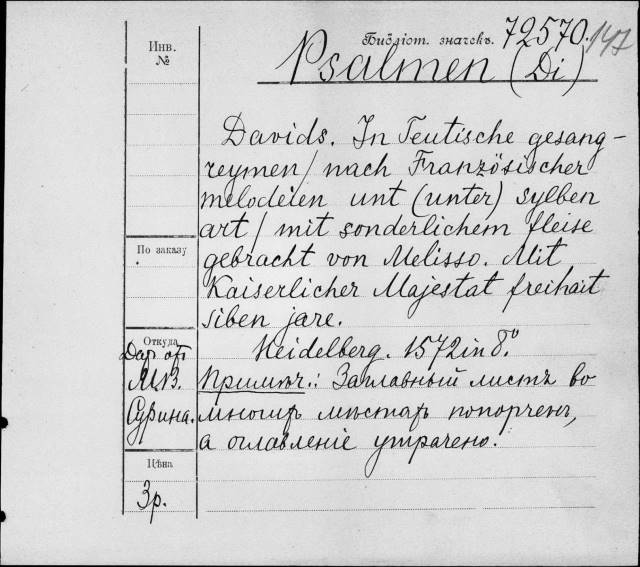 Инв.
№
Библіот. значекъ. 72570. 147
Psalmen (Di)
Davids. In Teutische gesang-
reymen / nach Französischer
melodeien unt (unter) sylben
art / mit sonderlichem fleise
По заказу
gebracht von Melisso. Mit
Kaiserlicher Majestat freihait
siben jare.
Откуда
Heidelberg. 1572 in 8º
Дар от
Примѣч.: Заглавный листъ во
многих мѣстах попорченъ,
Сурина.
а оглавленіе утрачено.
Цѣна
3 р.